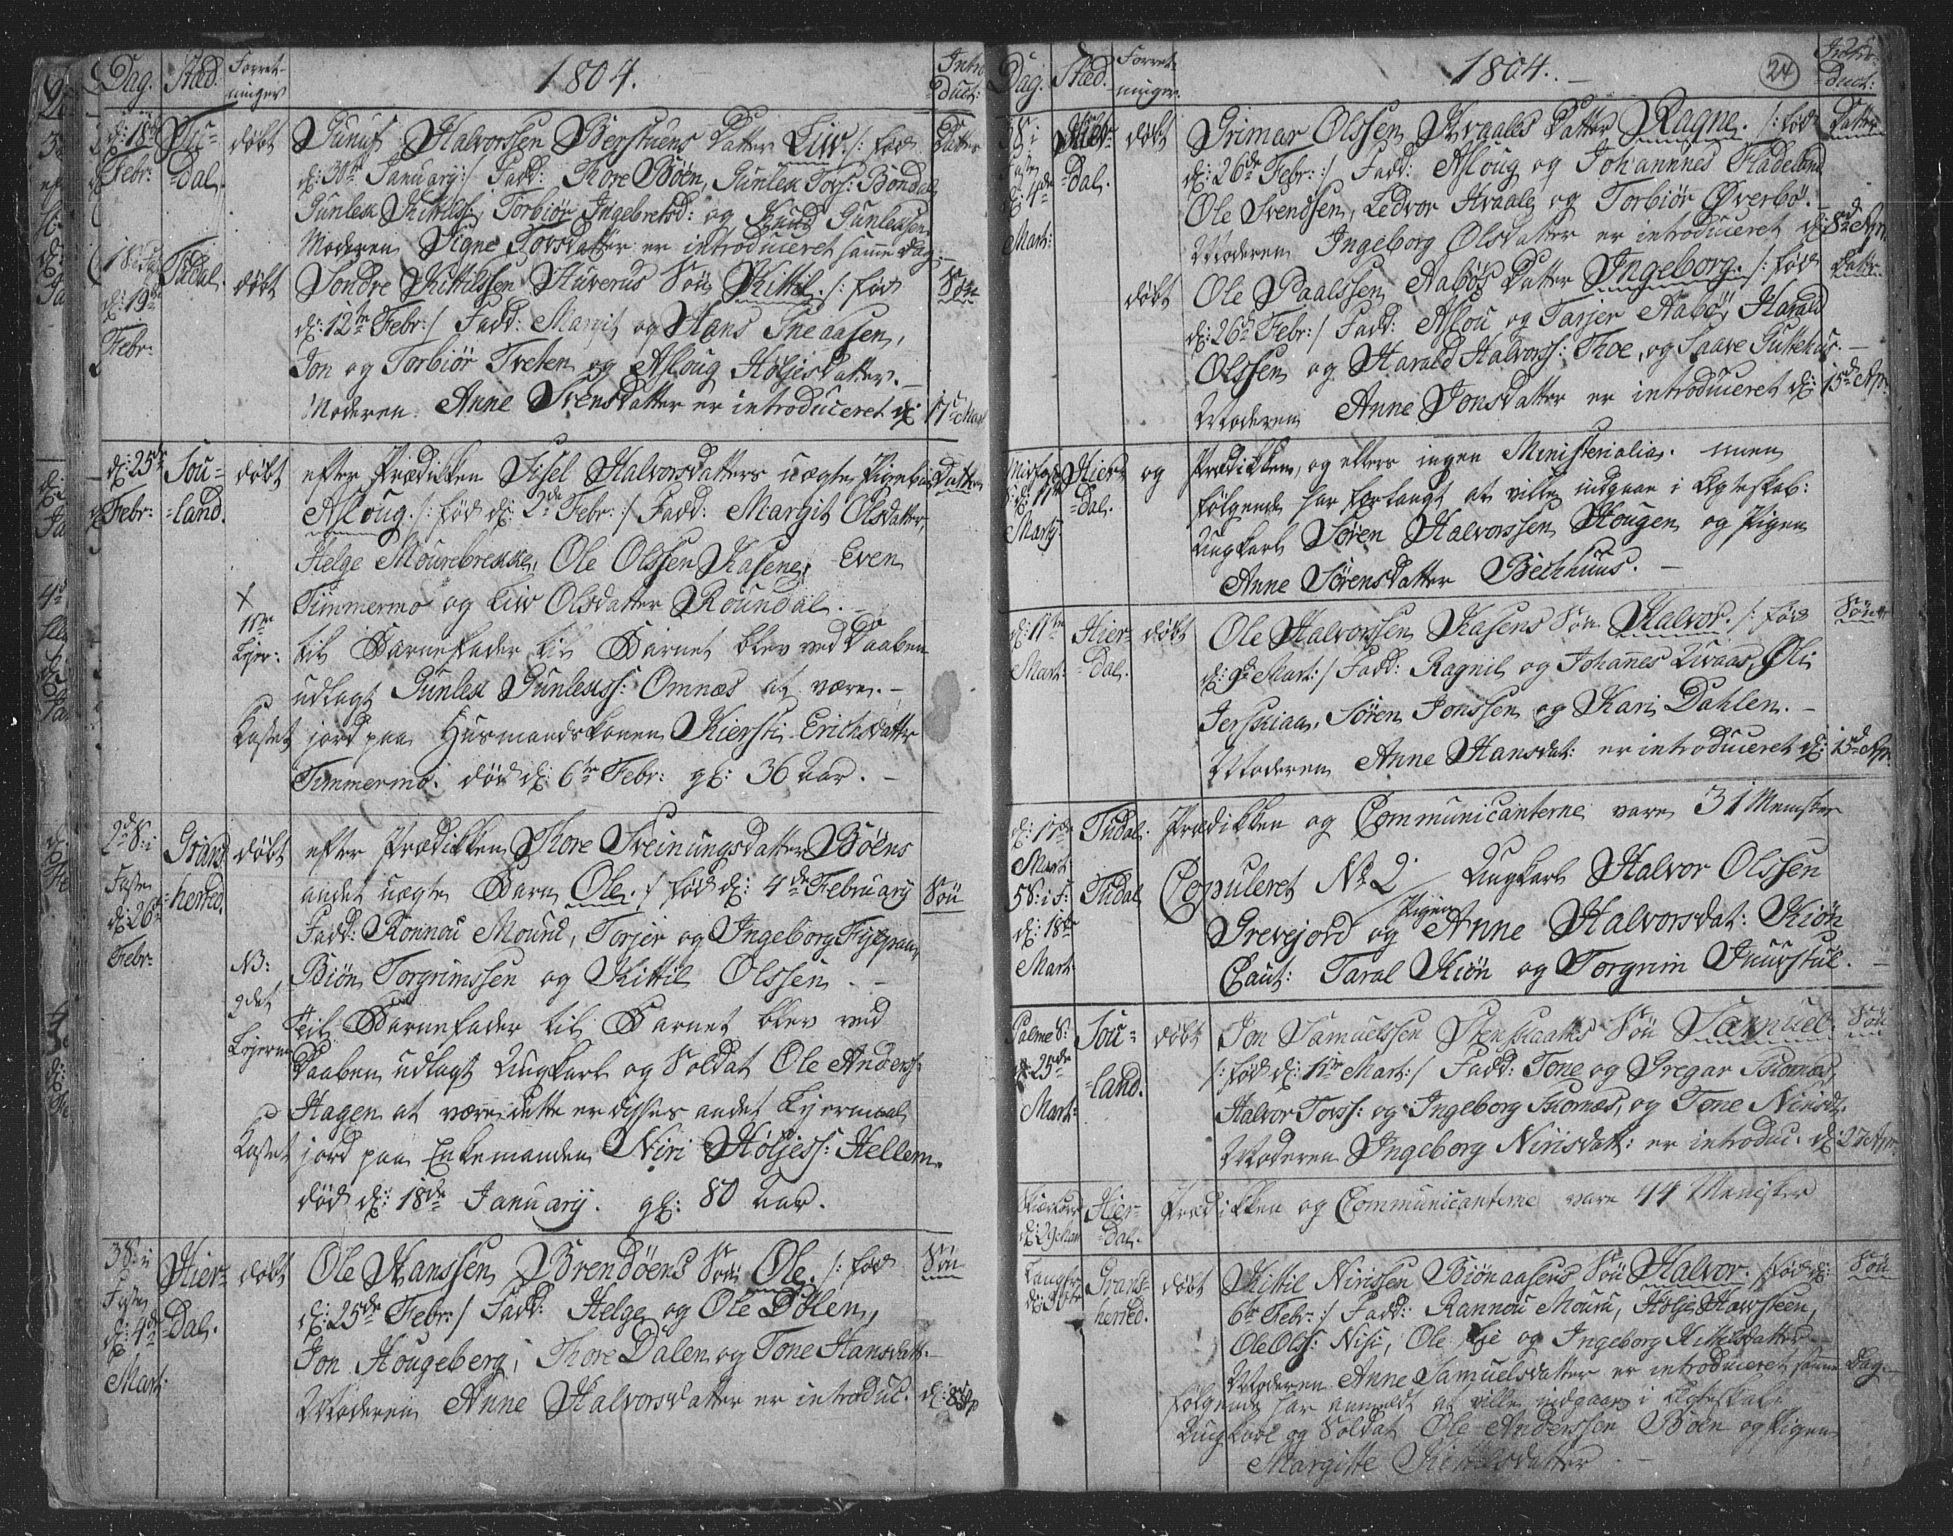 Dag. Sted. Forret-
ninger
1804.
Intro
duct:
d: 18de
Febr:
Tu-
dal.
døbt
Gunuf Halvorssen Berstuens Datter Liv /: fød
Datter
d: 30te January :/ Fadd: Thore Bøen, Gunlek Torss: Bondal
Gunlek Kittilss: Torbiør Ingebretsd: og Knud Gunlekssen
Moderen Signe Torsdatter er introduceret samme Dag.
d: 19de
Febr:
Tudal.
døbt
Sondre Kittilssen Huverus Søn Kittil /: fød
Søn
d: 12te Febr :/ Fadd: Margit og Hans Sneaasen,
Jon og Torbiør Treten og Asloug Høljesdatter.
Moderen Anne Svensdatter er introduceret d: 17de Mart
d: 25de
Febr:
Sou-
land.
døbt
efter Prædikken Sisel Halvorsdatters uægte Pigebarn
Datter
Asloug /: fød d: 2de Febr :/ Fadd: Margit Olsdatter,
Helge Mourebrekke, Ole Olssen Kasene, Even
Timmermo og Liv Olsdatter Roundal.
til Barnefader til Barnet blev ved Daaben
udlagt Gunlek Gunlekss: Omnæs at være.
Kastet
jord paa Husmandskonen Kiersti Erichsdatter
Timmermo. død d: 6te Febr: gl: 36 Aar.
2d S: i
Faste
d: 26de
Febr:
Grans
herred.
døbt
efter Prædikken Thore Sveinungsdatter Bøens
andet uægte Barn Ole /: fød d: 4de February
Søn
Fadd: Rønnou Mourd, Torjer og Ingeborg
Biøn Torgrimssen og Kittil Olssen.
NB:
2det
Lejerm
Til Barnefader til Barnet blev ved
Daaben udlagt Ungkarl og Soldat Ole Anderss:
Hagen at være dette er disses andet Lejermaal
Kastet
jord paa Enkemanden Niri Høljess: Hellem
død d: 18de January. gl: 80 Aar.
3 S: i
Faste
d: 4de
Mart:
Hier-
dal.
døbt
Ole Hanssen Brendøens Søn Ole /: fød
Søn
d: 25de Febr :/ Fadd: Helge og Ole Dølen,
Jon Hougeberg, Thore Dalen og Tone Hansdatt:
Moderen Anne Halvorsdatter er introduc: d: 8de Ap
Dag. Sted. Forret-
ninger.
1804.
24
Intro-
duct:
d: 4de
Mart:
Hier-
dal.
døbt
Grimar Olssen Hvaales Datter Ragne /: fød
Datter
d: 26de Febr :/ Fadd: Asloug og Johannnes Fladeland
Ole Svendsen, Ledvor Hvaale og Torbiør Øverbø.
Moderen Ingeborg Olsdatter er introduceret d: 8de Apr
døbt
Ole Paalssen Aabøs Datter Ingeborg /: fød
Datter
d: 26de Febr :/ Fadd: Aslou og Tarjer Aabø, Harald
Olssen og Harald Halvorss: Thoe, og Saave Guttehus.
Moderen Anne Jonsdatter er introduceret d: 15de Apr
Midfaste
d: 11te
Marty
Hier-
dal.
og
Prædikken, og ellers ingen Ministerialia. men
følgende har forlangt at ville indgaae i Egteskab:
Ungkarl Søren Halvorssen Hougen og Pigen
Anne Sørensdatter Bekhuus.
d: 11te
Mart:
Hier-
dal.
døbt
Ole Halvorssen Kasens Søn Halvor /: fød
Søn
d: 9de Mart :/ Fadd: Ragnil og Johannes Qvaas, Ole
Jerskaas, Søren Jonssen og Kari Dahlen.
Moderen Anne Hansdat: er introduceret d: 15de Apr.
d: 17de
Mart:
Tudal.
Prædikken og Communicanterne vare 31 Mennisker
5 S: i F:
d: 18de
Mart:
Tudal
Copuleret No 2 Ungkarl Halvor Olssen
Grevejord og Pigen Anne Halvorsdat: Kiøn
Caut: Taral Kiøn og Torgrim Juurstul.
Palme S:
d: 25de
Mart:
Sou-
land.
døbt
Jon Samuelssen Stenskaaths Søn Samuel
Søn
/: fød d: 11te Mart :/ Fadd: Tone og Gregar Skomæs,
Halvor Torss: og Ingeborg Skomæs, og Tone Nirisdt.
Moderen Ingeborg Nirisdatt: er introduc: d: 2den Apr.
Skiærtorsd
d: 29 Mart
Hier-
dal.
Prædikken og Communicanterne vare 44 Mennisker
Langfr:
d: 30te
Grans-
herred.
døbt
Kittil Nirissen Biønaasens Søn Halvor /: fød d:
Søn
6te Febr :/ Fadd: Rannou Mouru, Hølje Hovsteen,
Ole Olss: Nisi, Ole Lie og Ingeborg Kittelsdatter.
Moderen Anne Samuelsdatter er introduceret samme Dag.
følgende har anmeldt at ville indgaae i Egteskab
Ungkarl og Soldat Ole Anderssen Bøen og Pigen
Margitte Kittelsdatter.